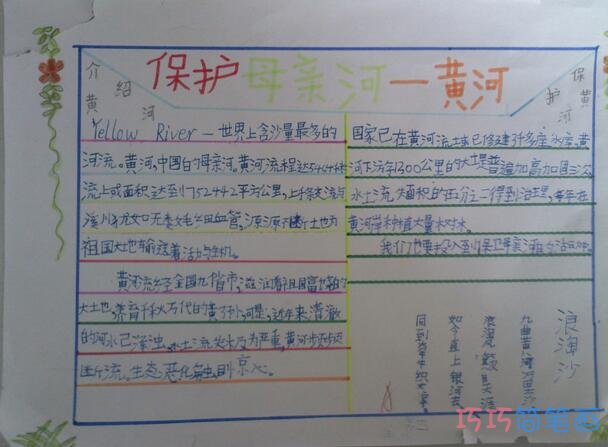 保护母亲河—黄河
介绍黄河
保护黄河
Yellow River—世界上含沙量最多的
河流。黄河,中国的母亲河。黄河流程达5464千米
流上或面积达到了752442平方公里,上千条支流与
溪川犹如无数毛细血管,源源不断土也为
祖国大地输送着活力与生机。
黄河流经全国九省市,滋润着祖国富饶的
大土也,养育千秋万代的黄河儿。可是,近年来清澈
的河水已浑浊,水土流失尤为严重,黄河步步
断流。生态恶化触目惊心。
国家已在黄河流土域已修建许多座水库,黄
河下流年1300公里的大堤普遍加高加固三次。
水土流失面积的五分之一得到治理,每年在
黄河岸种植大量木对木。
我们也要投入到保卫母亲河的活动中。
浪淘沙
九曲黄河万里沙
浪淘风簸自天涯
如今直上银河去
同到牵牛织女家。
巧巧简笔画